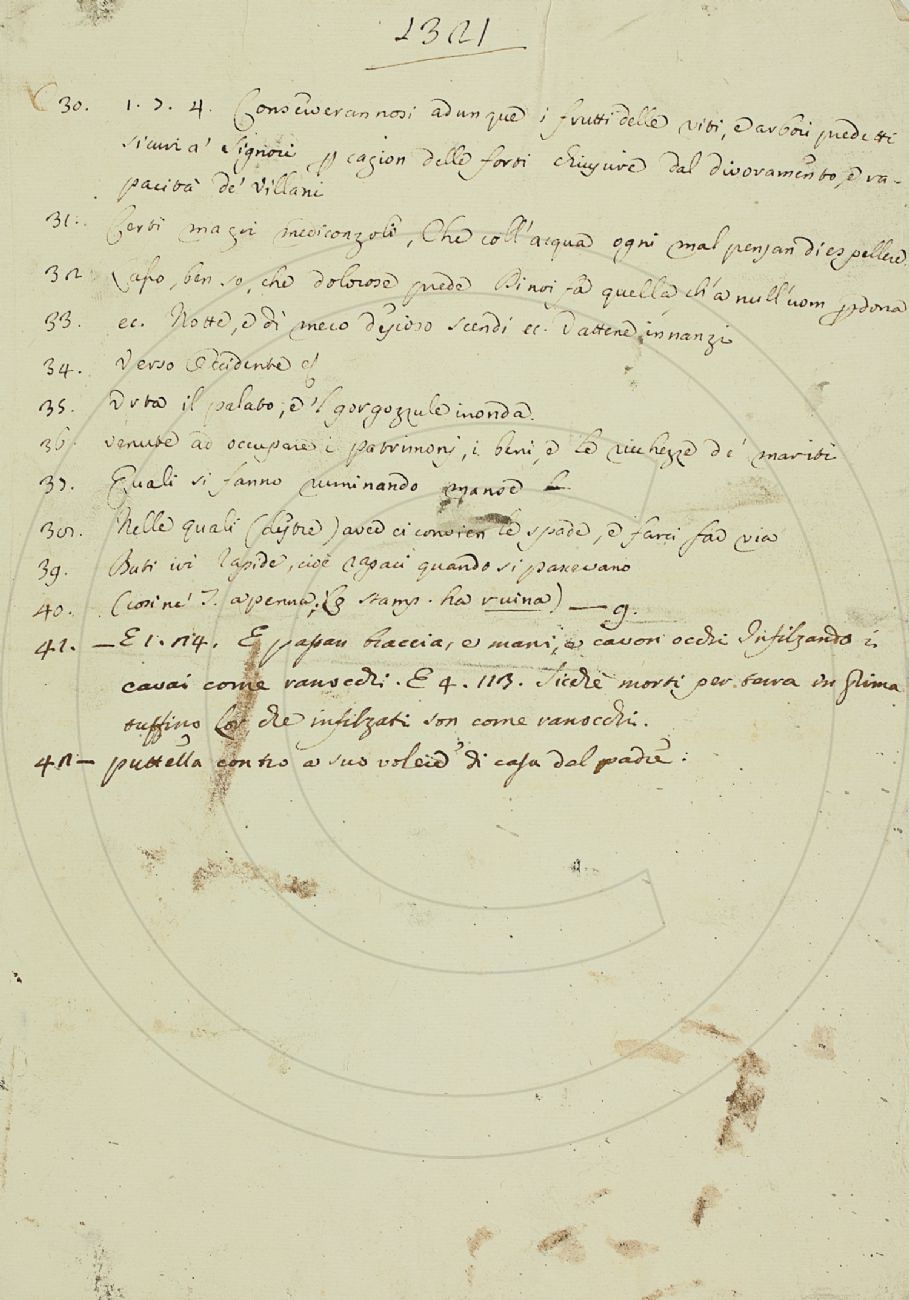 1321
30. 1. 7. 4. Conserverannosi adunque i frutti delle viti, e arbori predetti
sicuri a' Signori p cagion delle forti chiusure dal divoramento, e ra-
pacità de' Villani
31. Certi magri mediconzoli, Che coll'acqua ogni mal pensan di espellere
32 Lapo, ben so, che dolorose prede Di noi fa quella ch'a null'uom pdona
33. ec. Notte, e dì meco disioso scendi ec. Vattene innanzi
34. Verso Occidente
35. Urta il palato, e 'l gorgozzule inonda.
36. venute ad occupare i patrimonj, i beni, e le ricchezze de' mariti
37. Quali si fanno ruminando manse
38. Nelle quali aver ci convien le spade, e farci far via
39. Rati ivi rapide, cioè rapaci quando si pascevano
40. (così ne' T. a penna; lo stamp. ha ruina) — g.
41. — E 1. 24. E papau braccia, e mani, e cavon occhi Infilzando i
cavai come ranocchi. E 4. 113. Sicchè morti per terra in prima
tuffino Lor che infilzati son come ranocchi.
42 — puttella contro a suo volere di casa del padre: